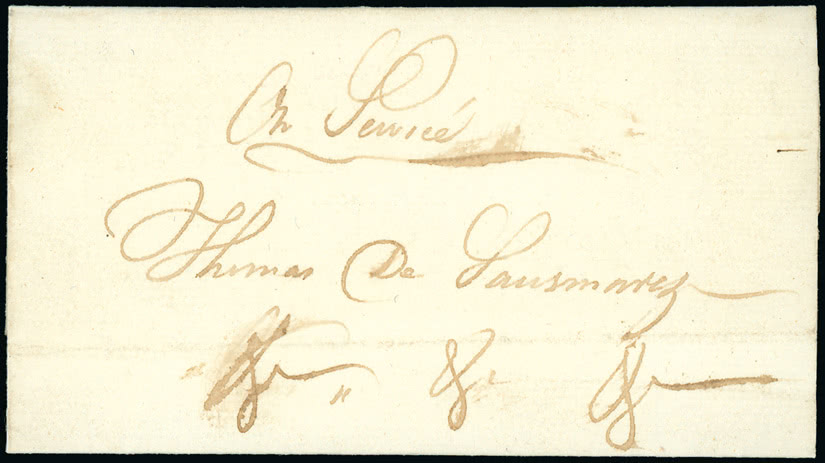 On Service
Thomas De Sausmarez
&c " &c &c